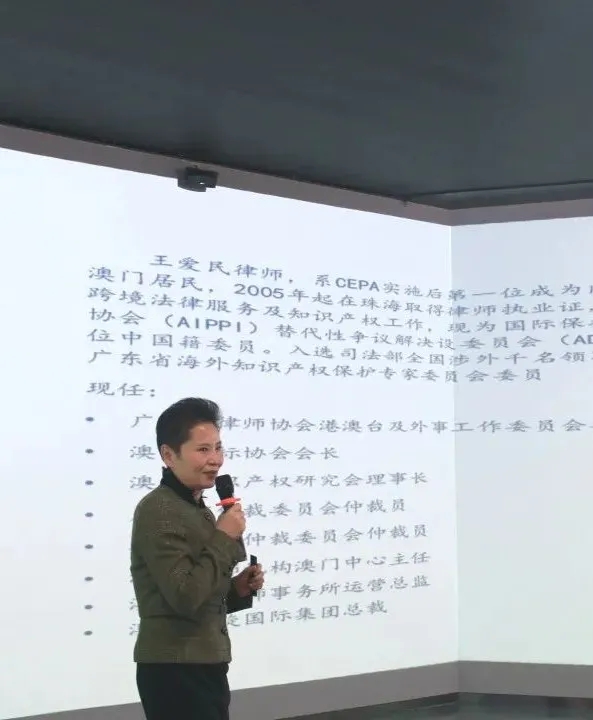 王爱民律师，系CEPA实施后第一位成为
澳门居民，2005年起在珠海取得律师执业证，
跨境法律服务及知识产权工作，现为国际保
协会（AIPPI）替代性争议解决设委员会（AD
位中国籍委员。入选司法部全国涉外千名领
广东省海外知识产权保护专家委员会委员
现任：
• 广 律师协会港澳台及外事工作委员会
• 澳 标协会会长
• 澳 产权研究会理事长
• 裁委员会仲裁员
• 仲裁委员会仲裁员
• 构澳门中心主任
• 师事务所运营总监
• 国际集团总裁